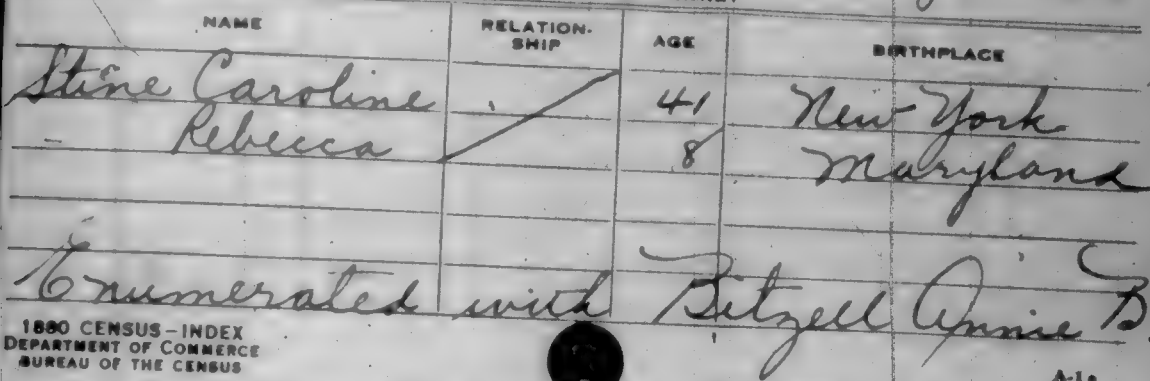 NAME RELATION-SHIP AGE BIRTHPLACE
Stine Caroline 41 New York
- Rebecca 8 Maryland
Enumerated with Bitzell Annie B
1880 CENSUS-INDEX
DEPARTMENT OF COMMERCE
BUREAU OF THE CENSUS
A-1a